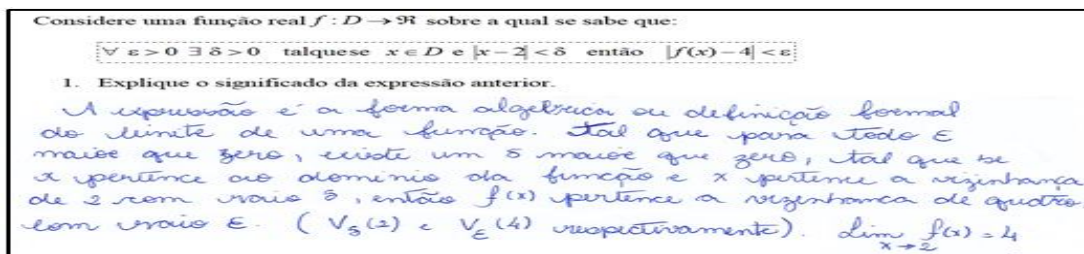 Considere uma função real f : D → ℜ sobre a qual se sabe que:
∀ ε > 0 ∃ δ > 0 talquese x ∈ D e |x − 2| < δ então |f(x) − 4| < ε
1. Explique o significado da expressão anterior.
A expressão é a forma algébrica ou definição formal
do limite de uma função. Tal que para todo ε
maior que zero, existe um δ maior que zero, tal que se
x pertence ao domínio da função e x pertence a vizinhança
de 2 com raio δ, então f(x) pertence a vizinhanca de quatro
com raio ε. ( Vδ(2) e Vε(4) respectivamente). Lim x→2 f(x) = 4